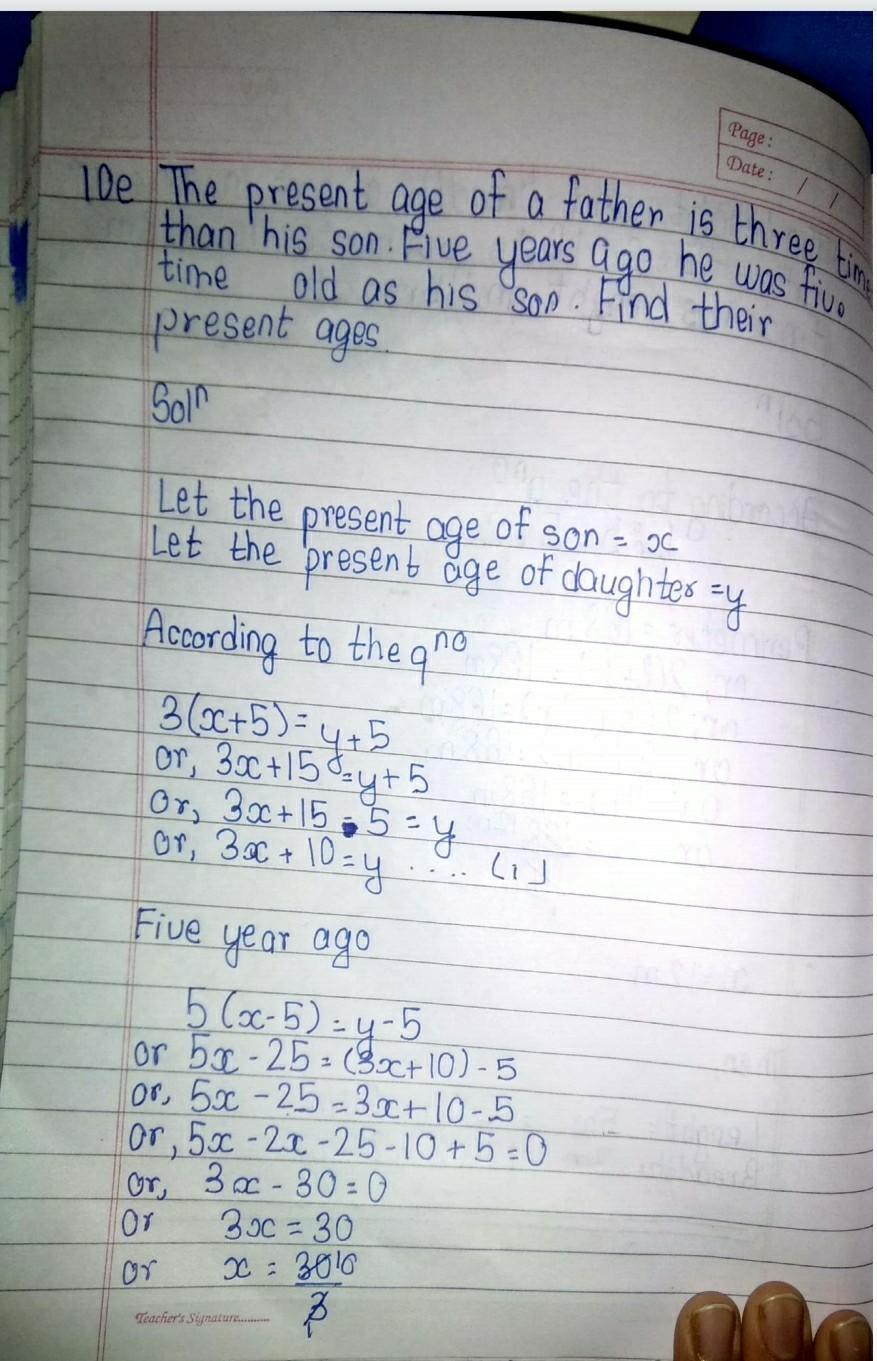 Page:
Date: / /
10e The present age of a father is three time
than his son. Five years ago he was five
time old as his son. Find their
present ages.
Solⁿ
Let the present age of son = x
Let the present age of daughter = y
According to the qⁿᵒ
3(x+5) = y+5
or, 3x+15 = y+5
or, 3x+15 - 5 = y
or, 3x + 10 = y .... (i)
Five year ago
5(x-5) = y-5
or 5x - 25 = (3x+10) - 5
or, 5x - 25 = 3x+10-5
or, 5x - 2x - 25 - 10 + 5 = 0
or, 3x - 30 = 0
or 3x = 30
or x = 30 10
3 1
Teacher's Signature..........